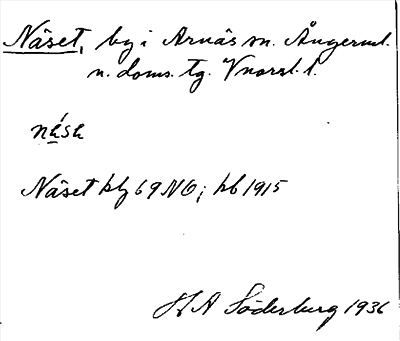 Näset, by i Arnäs sn. Ångerml.
n. doms. tg. Vnorrl. l.
Näset kbl 69 NO; kb 1915
H A Söderburg 1936